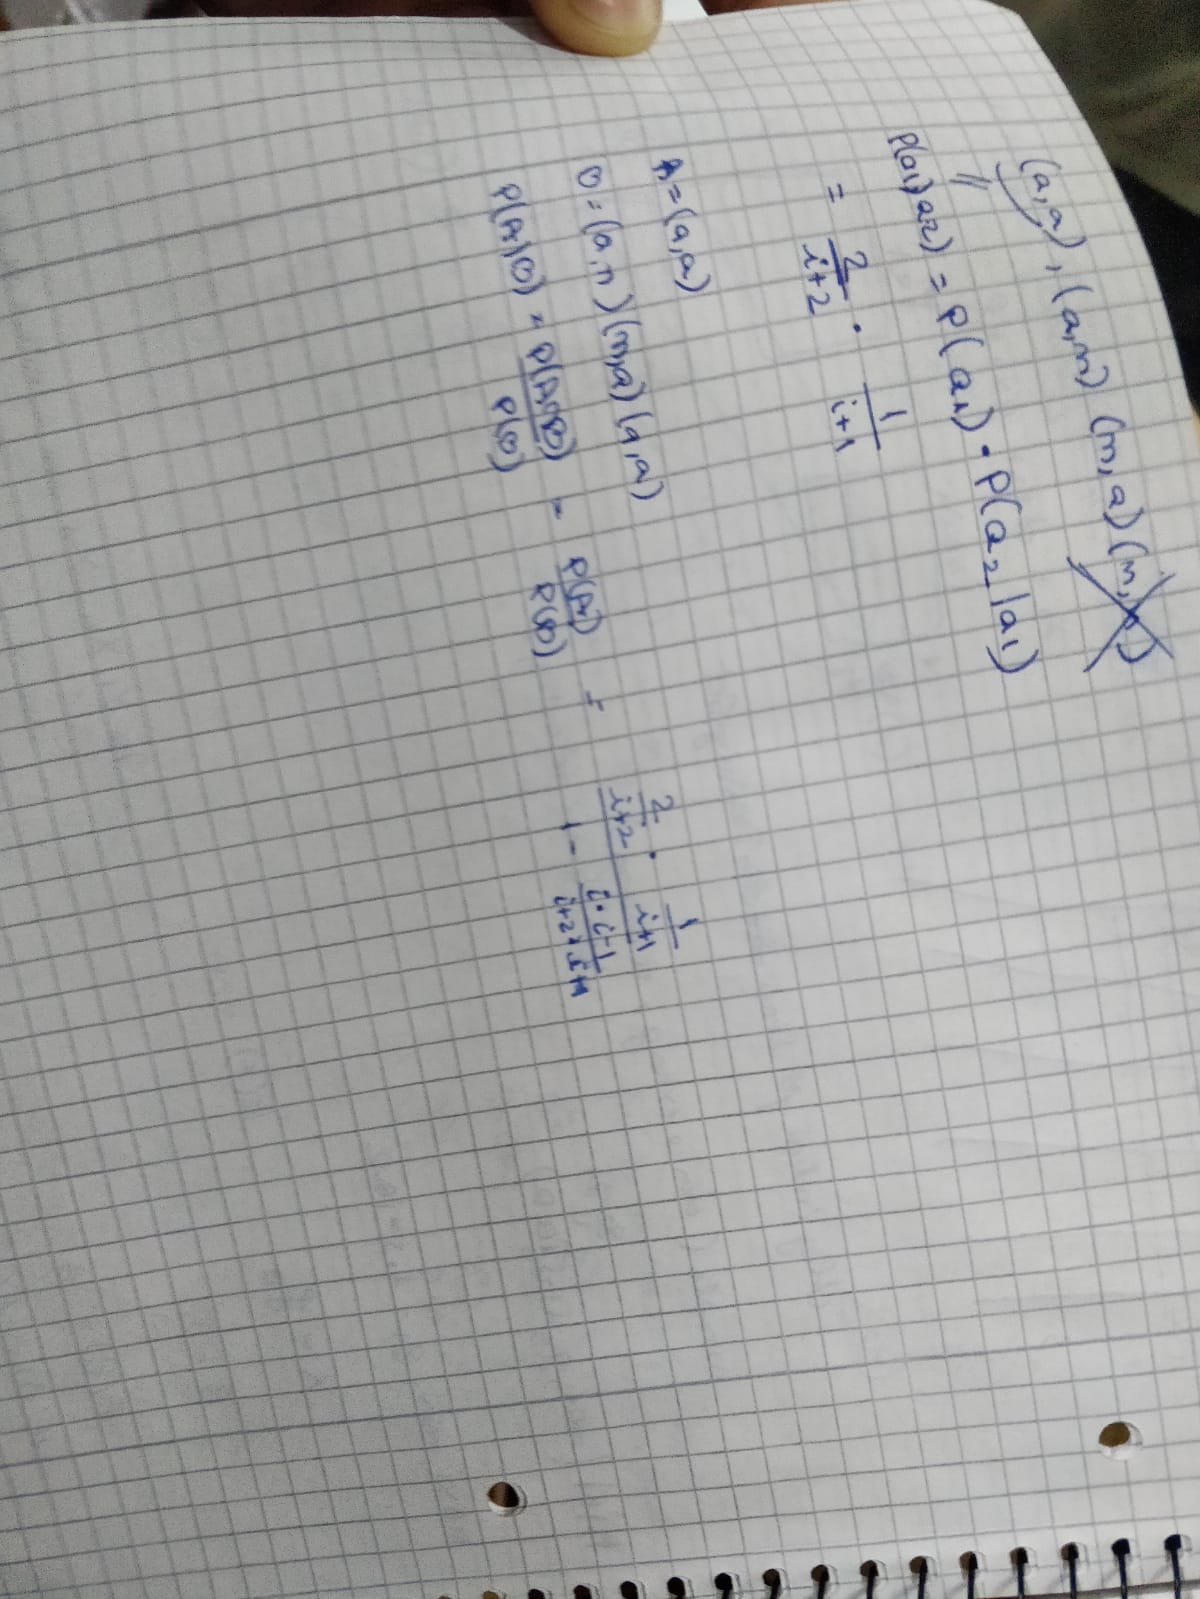 (a,a), (a,n) (n,a) (n,n)
P(a1,a2) = P(a1) · P(a2|a1)
= 2/(i+2) · 1/(i+1)
A = (a,a)
O = (a,n) (n,a) (a,a)
P(A|O) = P(A∩O)/P(O) = P(A)/P(O) = (2/(i+2) · 1/(i+1))/(1 - (i·i-1)/(i+2·i+1))